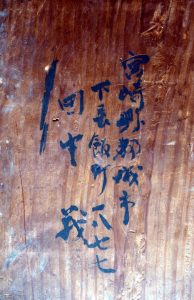 宮崎県都城市
下長飯町一八七七
田中